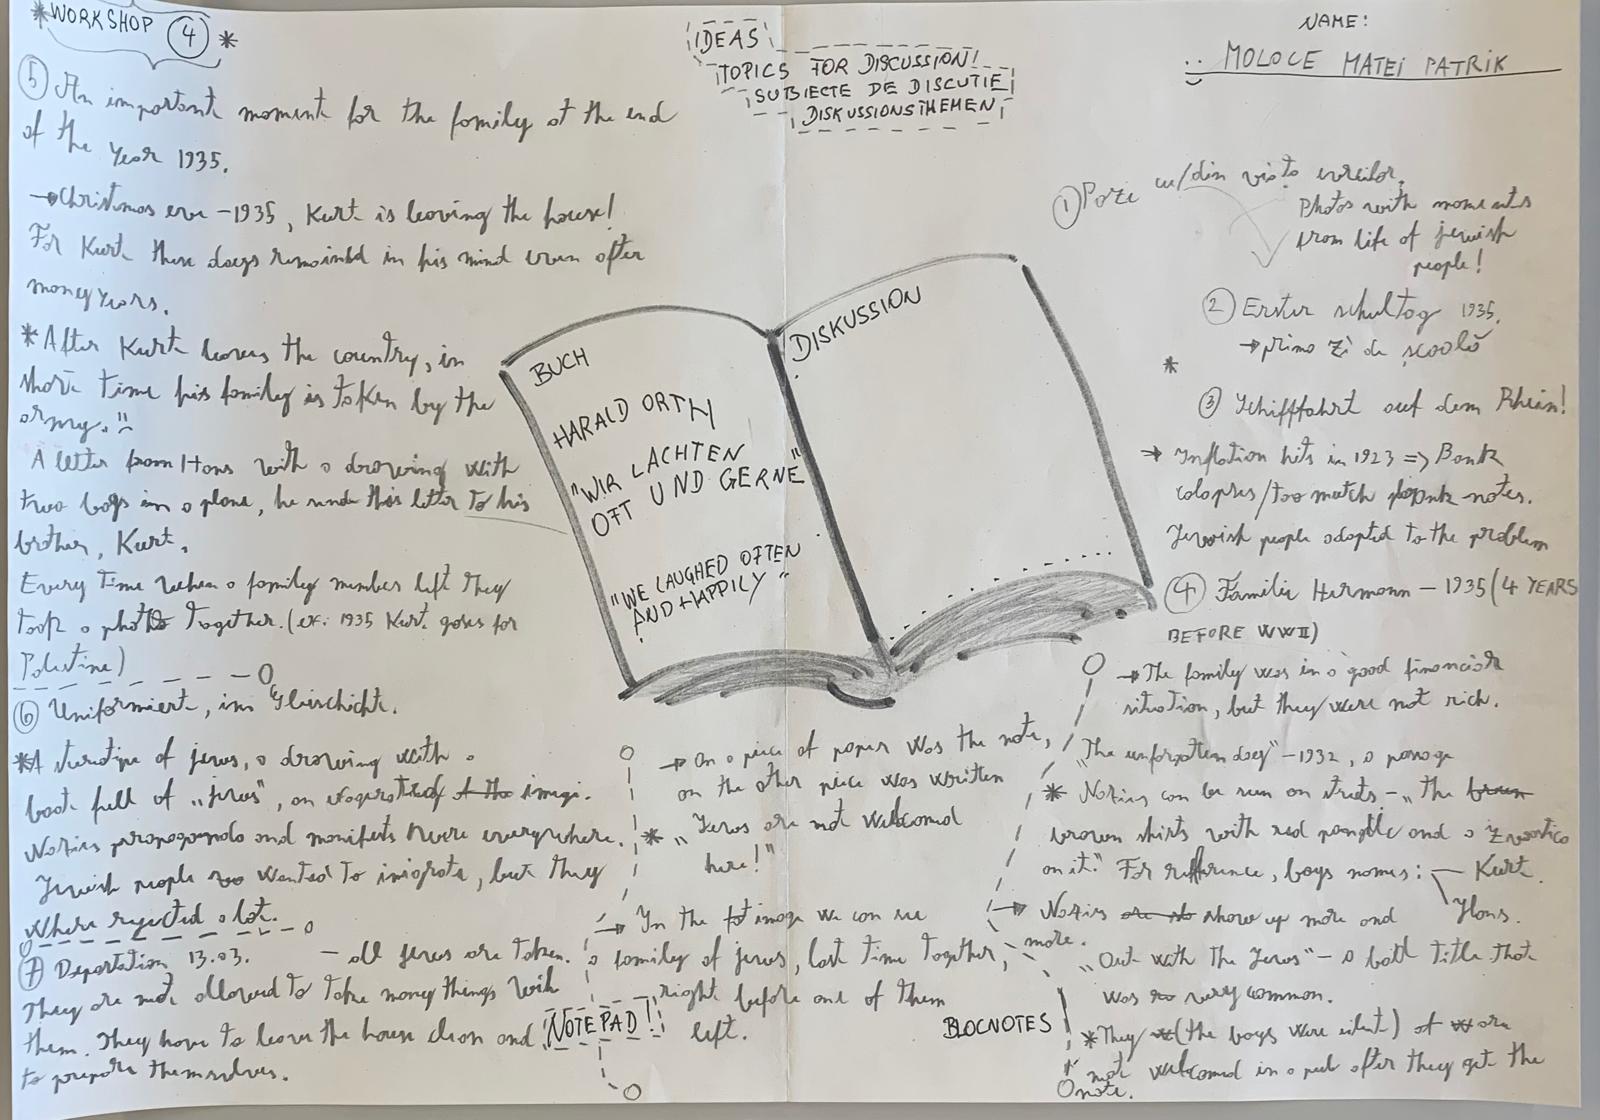 *WORKSHOP 4 *
IDEAS
TOPICS FOR DISCUSSION!
SUBIECTE DE DISCUTIE
DISKUSSIONSTHEMEN
NAME:
MOLOCE MATEI PATRIK
① Poze cu/din viața evreilor.
Photos with moments
from life of jewish
people!
② Erster schultag 1935.
→ prima zi de școală
*
③ Schifffahrt auf dem Rhein!
→ Inflation hits in 1923 => Bank
colapses/too match bank notes.
Jewish people adapted to the problem
④ Familie Hermann – 1935 (4 YEARS
BEFORE WWII)
→ The family was in a good financial
situation, but they were not rich.
"The unforgotten day" – 1932, a
* Nazies can be seen on streets – "The brown
brown shirts with red and a Zvastica
on it." For refference, boys names: – Kurt.
Hans.
→ Nazies are so show up more and
more.
"Out with the Jews" – a batt title that
was so very common.
* They (the boys were silent) at are
not welcomed in a pub after they get the
note.
BUCH
HARALD ORTH
"WIR LACHTEN
OFT UND GERNE"
"WE LAUGHED OFTEN
AND HAPPILY"
DISKUSSION
⑤ An important moment for the family at the end
of the year 1935.
→ Christmas eve – 1935, Kurt is leaving the house!
For Kurt these days remainbd in his mind even after
many years.
* After Kurt leaves the country, in
short time his family is token by the
army.
A letter from Hans with a drawing with
two boys in a plane, he sende this letter to his
brother, Kurt.
Every time when a family member left they
took a photo together. (ex: 1935 Kurt goses for
Palestine)
⑥ Uniformiert, im Gleischicht.
*A steriotipe of jews, a drawing with a
boat full of "jews", an exagerated at the image.
Nazies propaganda and manifests were everywhere.
Jewish people wanted to imigrate, but they
where rejected a lot.
⑦ Deportation 13.03. – all jews are taken.
They are not allowed to take many things with
them. They have to leave the house clean and
to prepare themselves.
NOTEPAD!
→ On a piece of paper was the note,
on the other piece was written
* "Jews are not welcomed
here!"
→ In the fot image we can see
a family of jews, last time together,
right before one of them
left.
BLOCNOTES